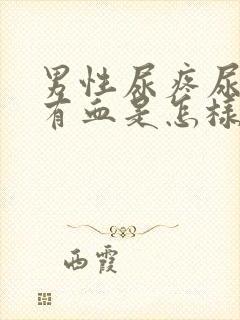 男性尿疼尿
有血是怎样
西霞